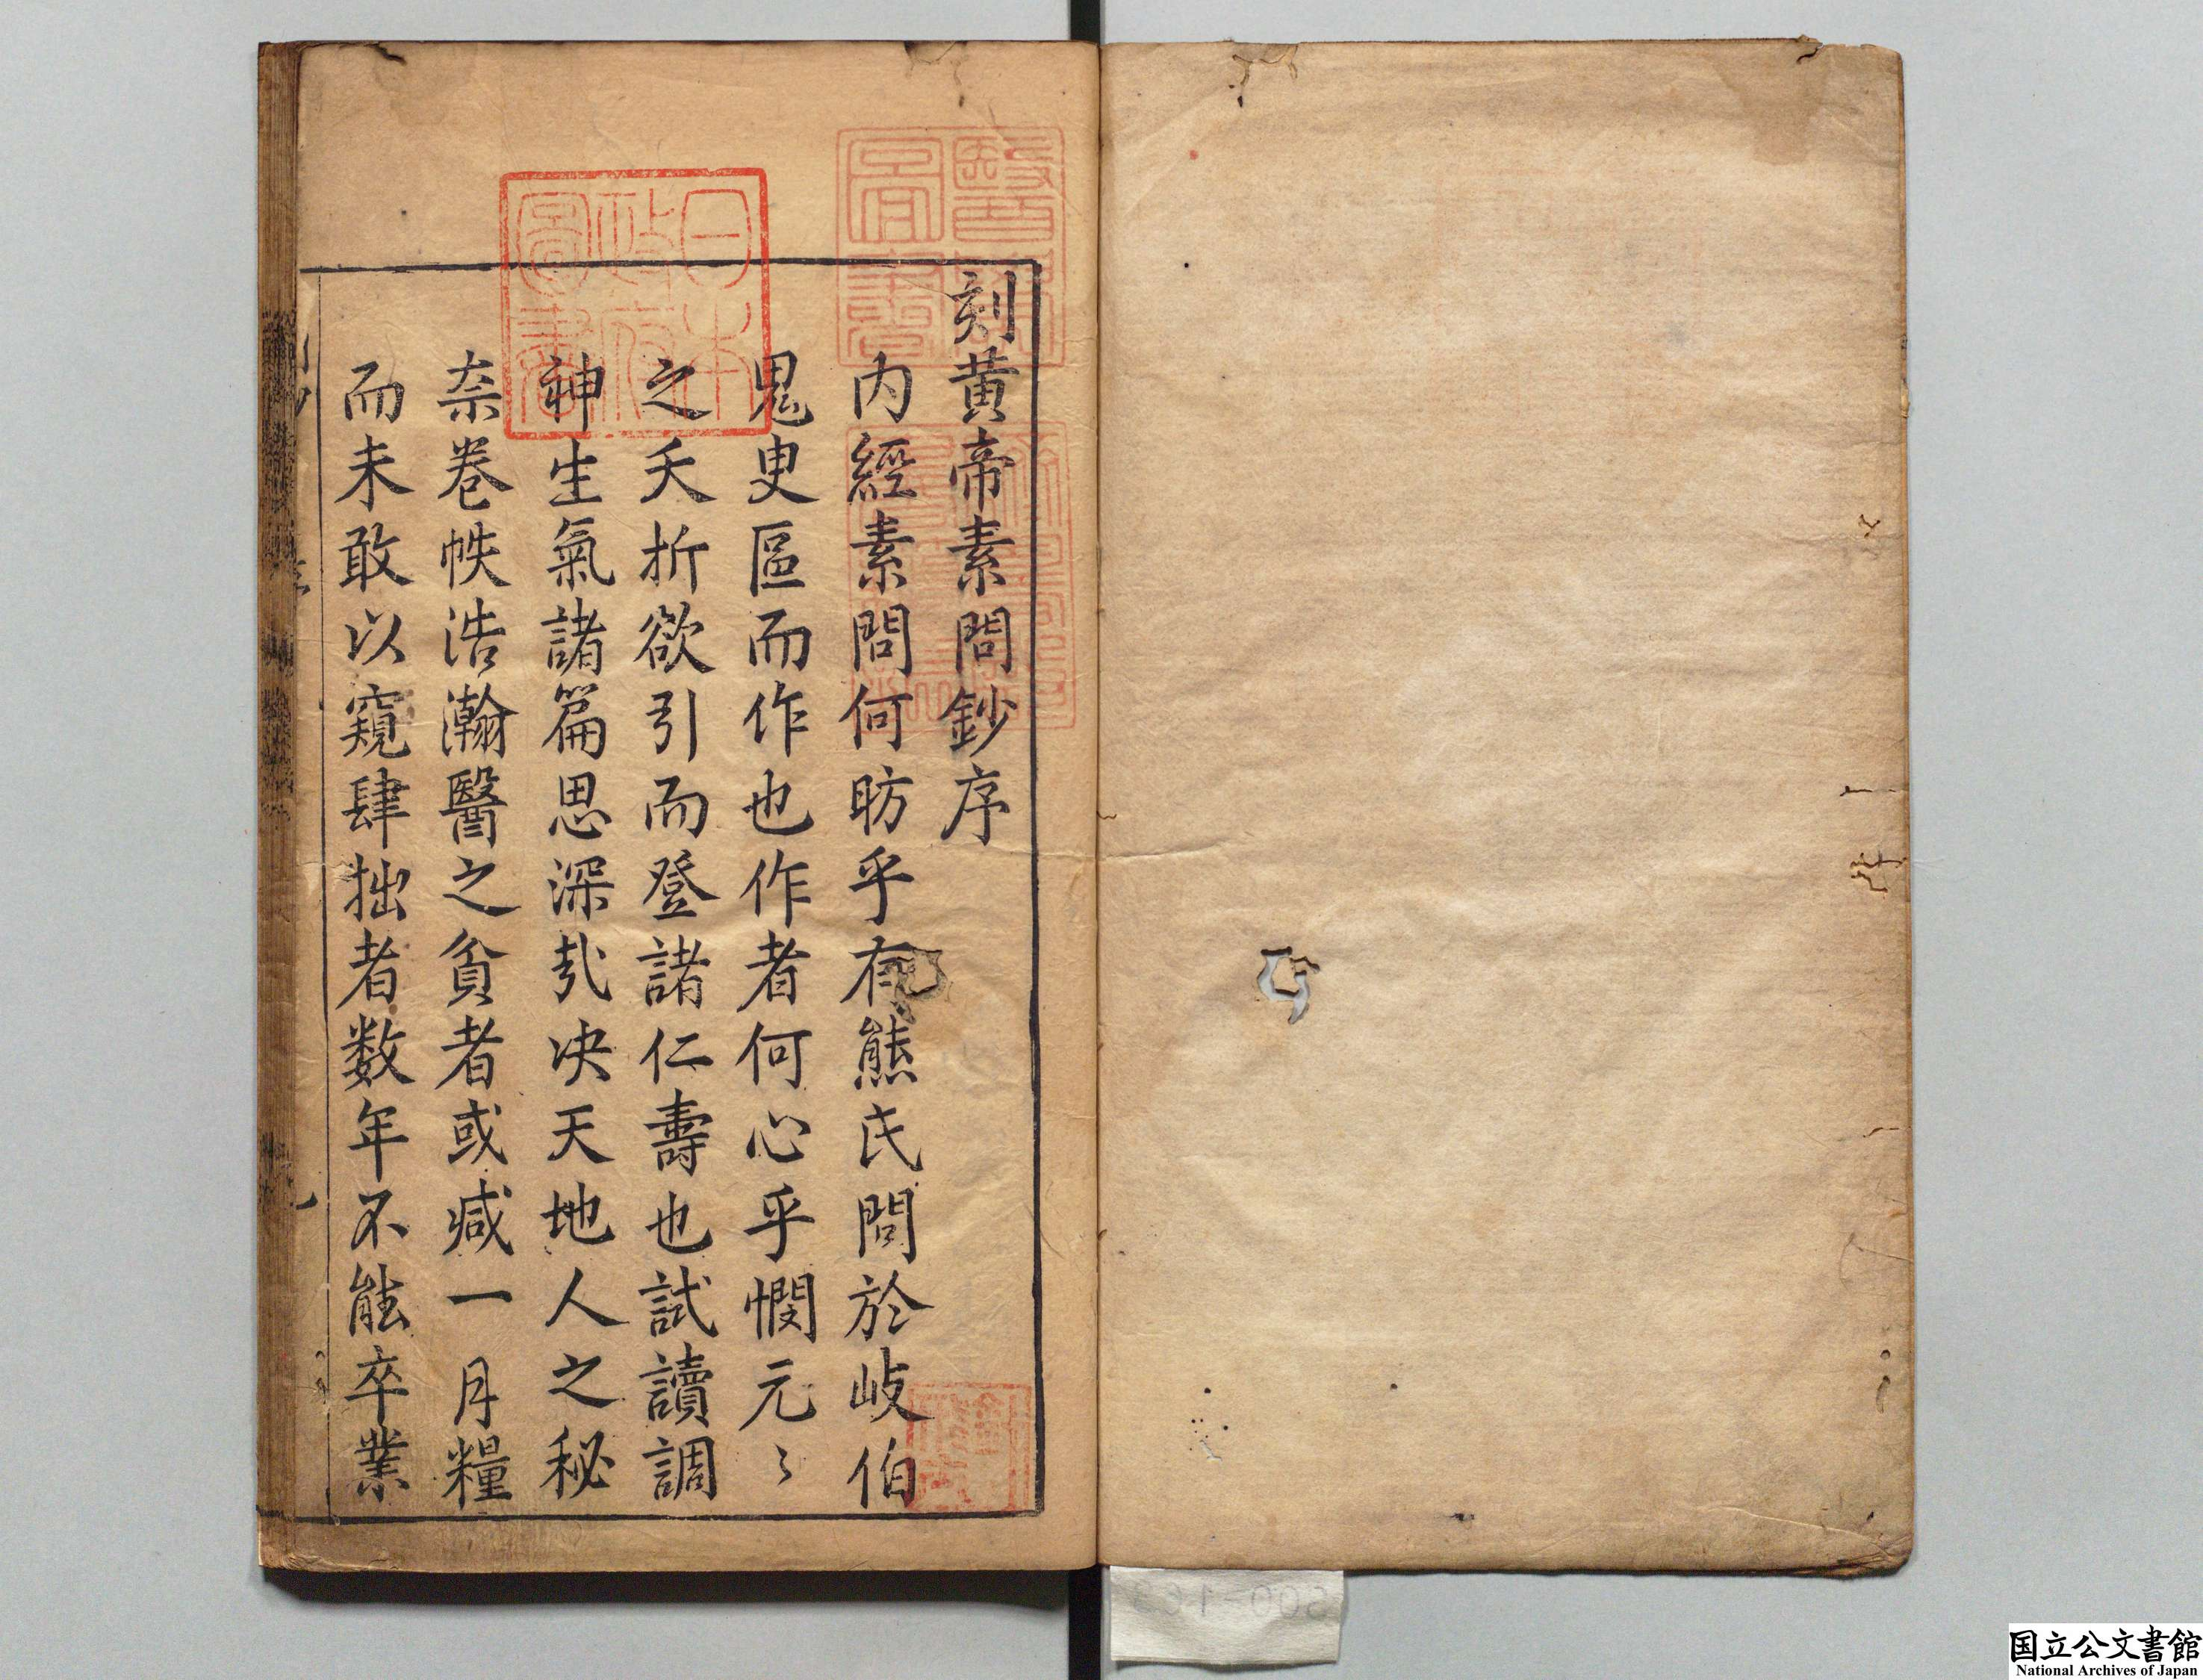 刻黄帝素問鈔序
内經素問何昉乎有熊氏問於岐伯
鬼臾區而作也作者何心乎憫元〻
之夭折欲引而登諸仁壽也試讀調
神生氣諸篇思深哉决天地人之秘
柰卷帙浩瀚醫之貧者或咸一月糧
而未敢以窺肆拙者数年不能卒業
日本政府圖書
醫學圖書
国立公文書館
National Archives of Japan